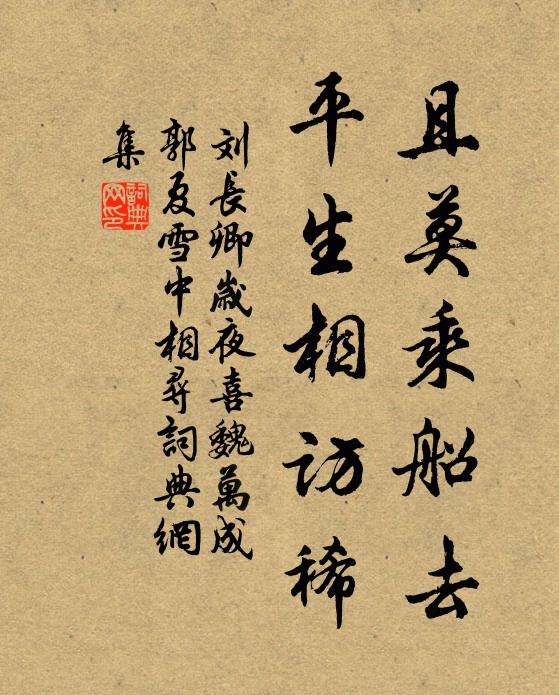 且莫乘船去
平生相访稀
刘長卿嵗夜喜魏萬成
郭夏雪中相尋詞典網
集
詞典
网印